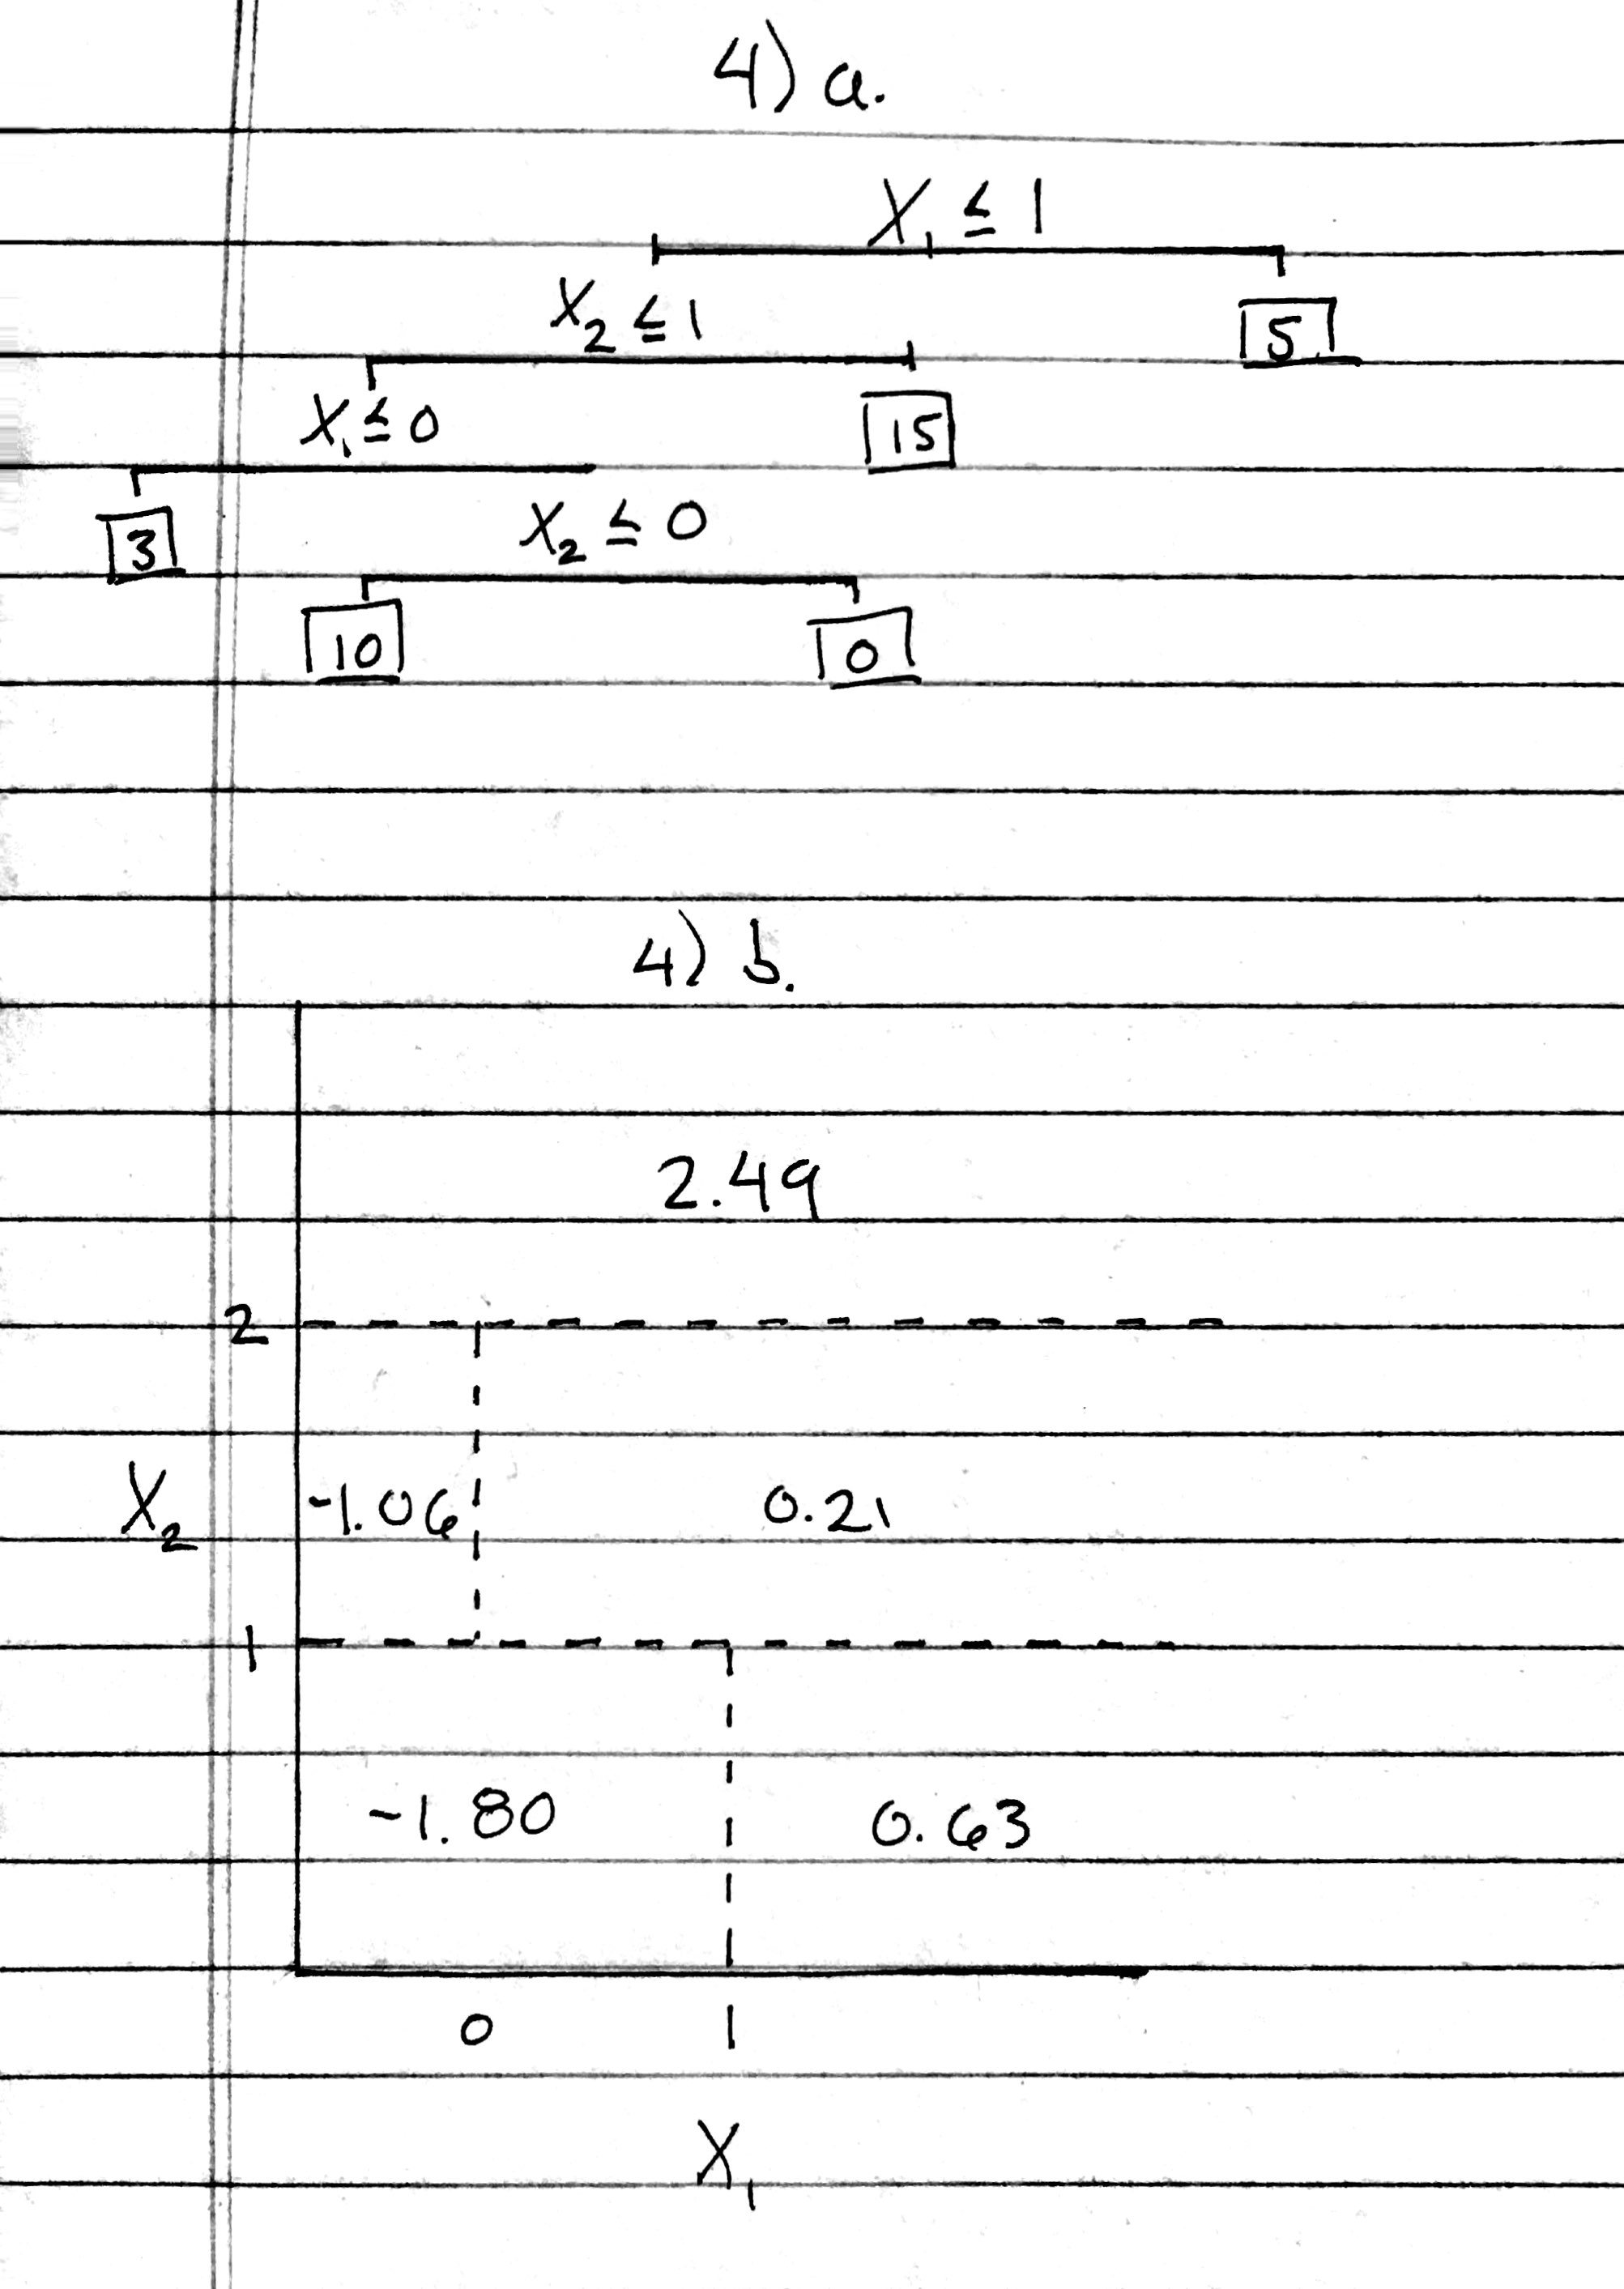 4) a.
X₁ ≤ 1
X₂ ≤ 1
5
X₁ ≤ 0
15
X₂ ≤ 0
3
10
0
4) b.
2.49
2
X₂
-1.06
0.21
1
-1.80
0.63
0
1
X₁